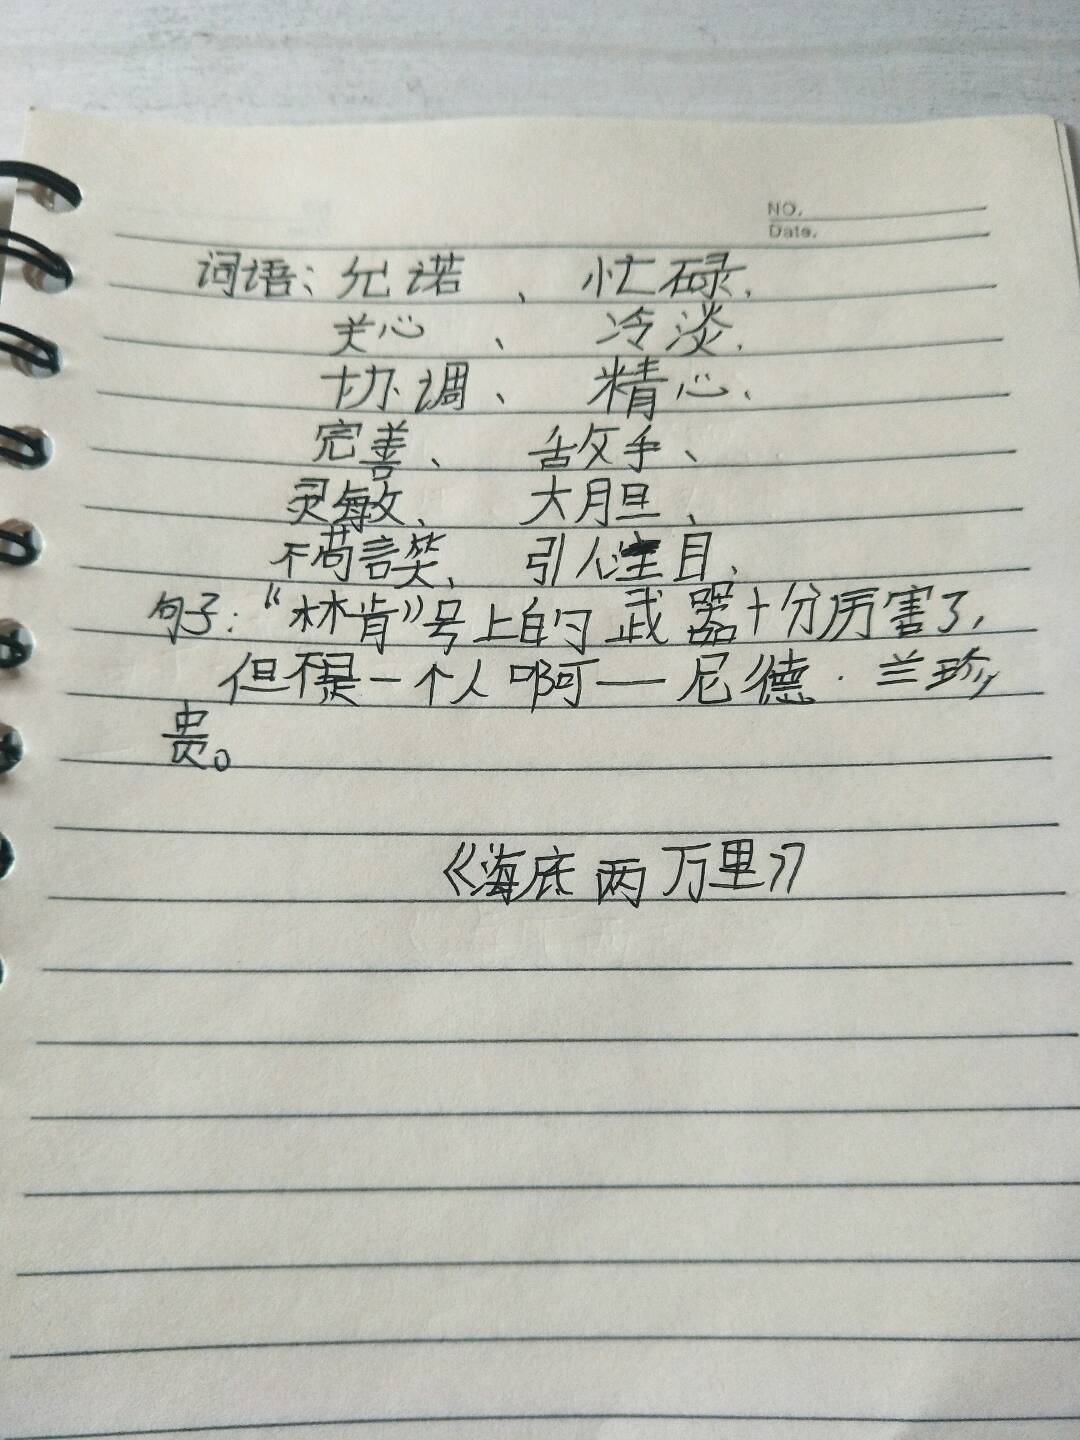 NO.
Date.
词语：允诺、忙碌、
关心、冷淡、
协调、精心、
完善、敌手、
灵敏、大胆、
不苟言笑、引人注目、
句子："林肯"号上的武器十分厉害了，
但不是一个人啊——尼德·兰珍
贵。
《海底两万里》